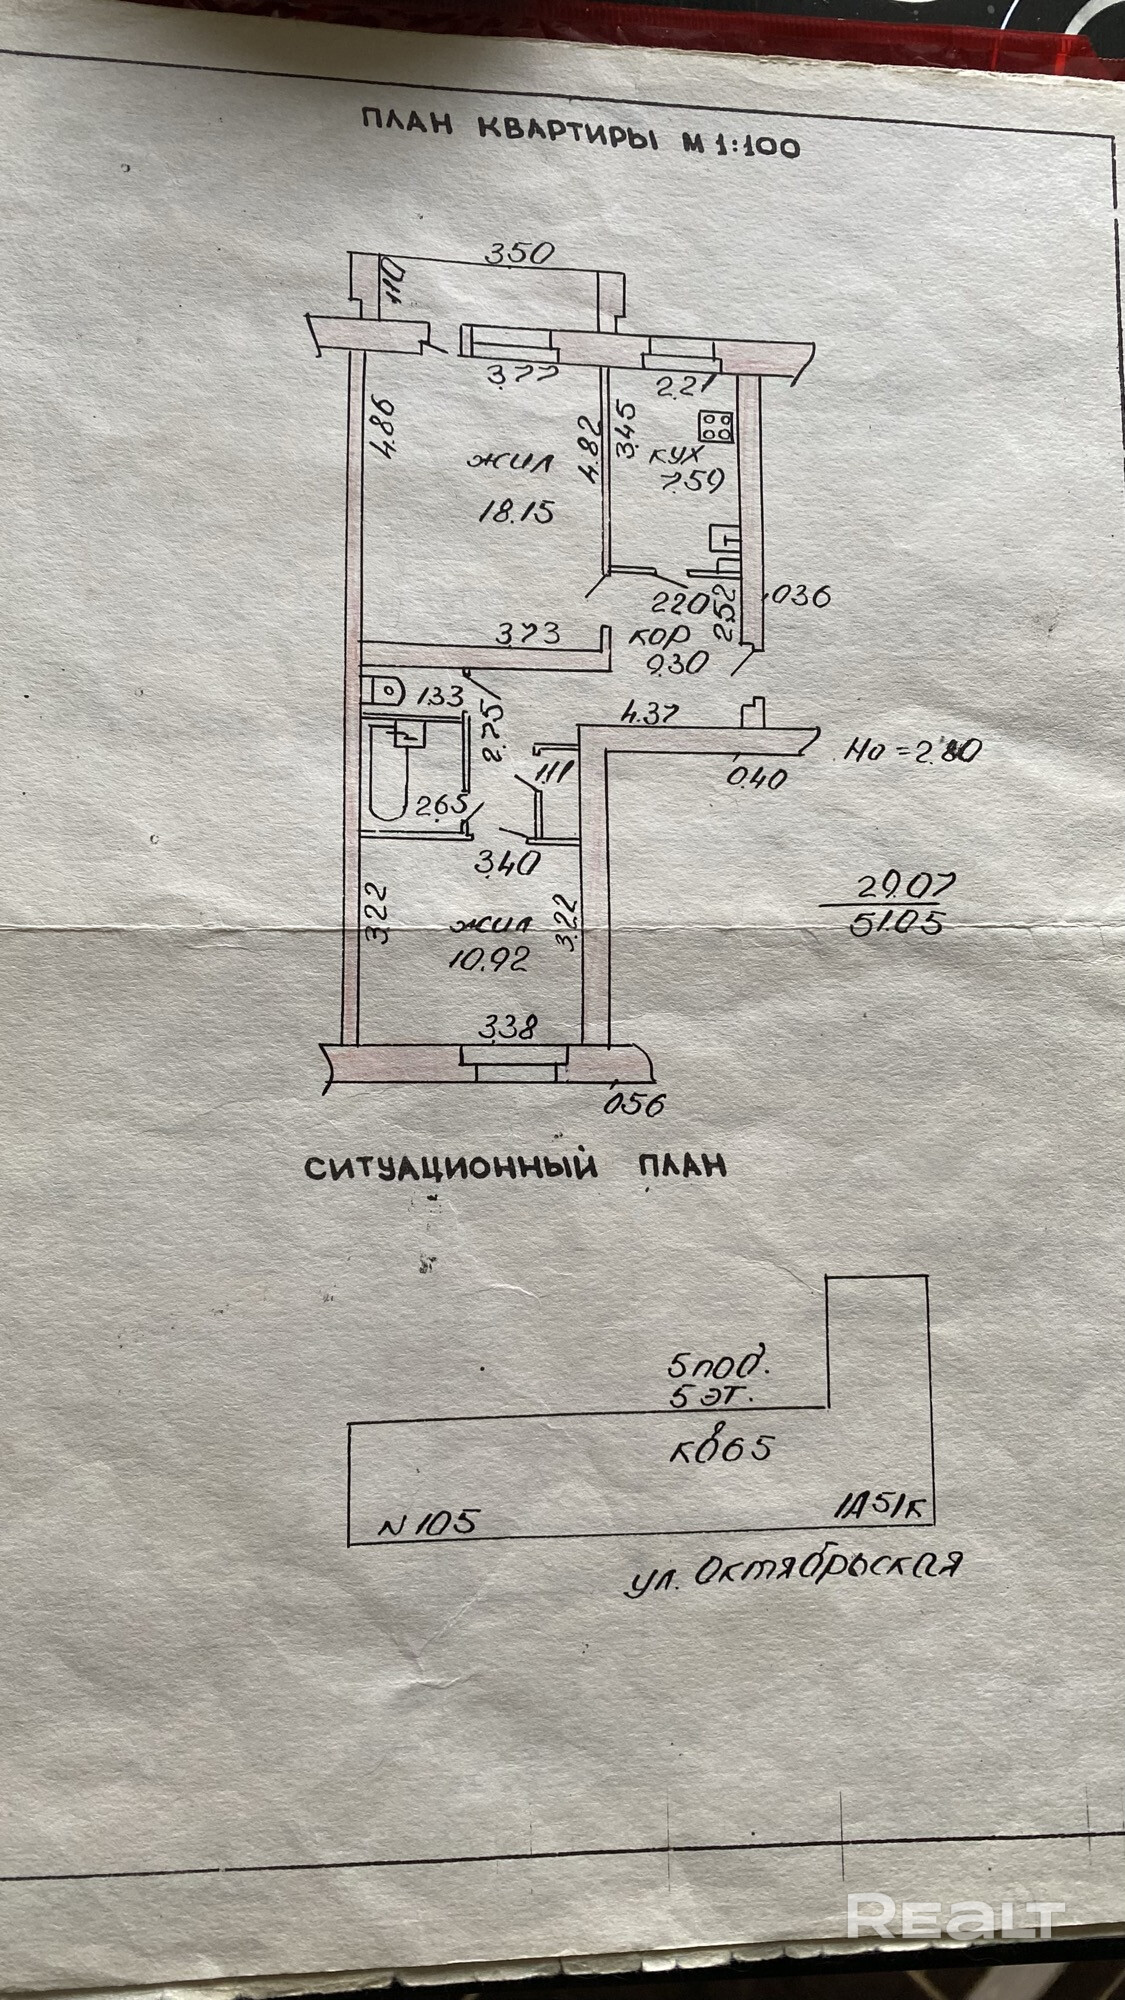 ПЛАН КВАРТИРЫ М 1:100
350
110
3.77
2.21
4.86
4.82
3.45
жил
18.15
кух
7.59
220
2.52
036
3.73
кор
9.30
133
2.75
4.37
1.11
Но = 2.80
0.40
2.65
3.40
29.07
51.05
3.22
3.22
жил
10.92
3.38
056
СИТУАЦИОННЫЙ ПЛАН
5 под.
5 эт.
кв 65
N 105
1А5/к
ул. Октябрьская
Realt